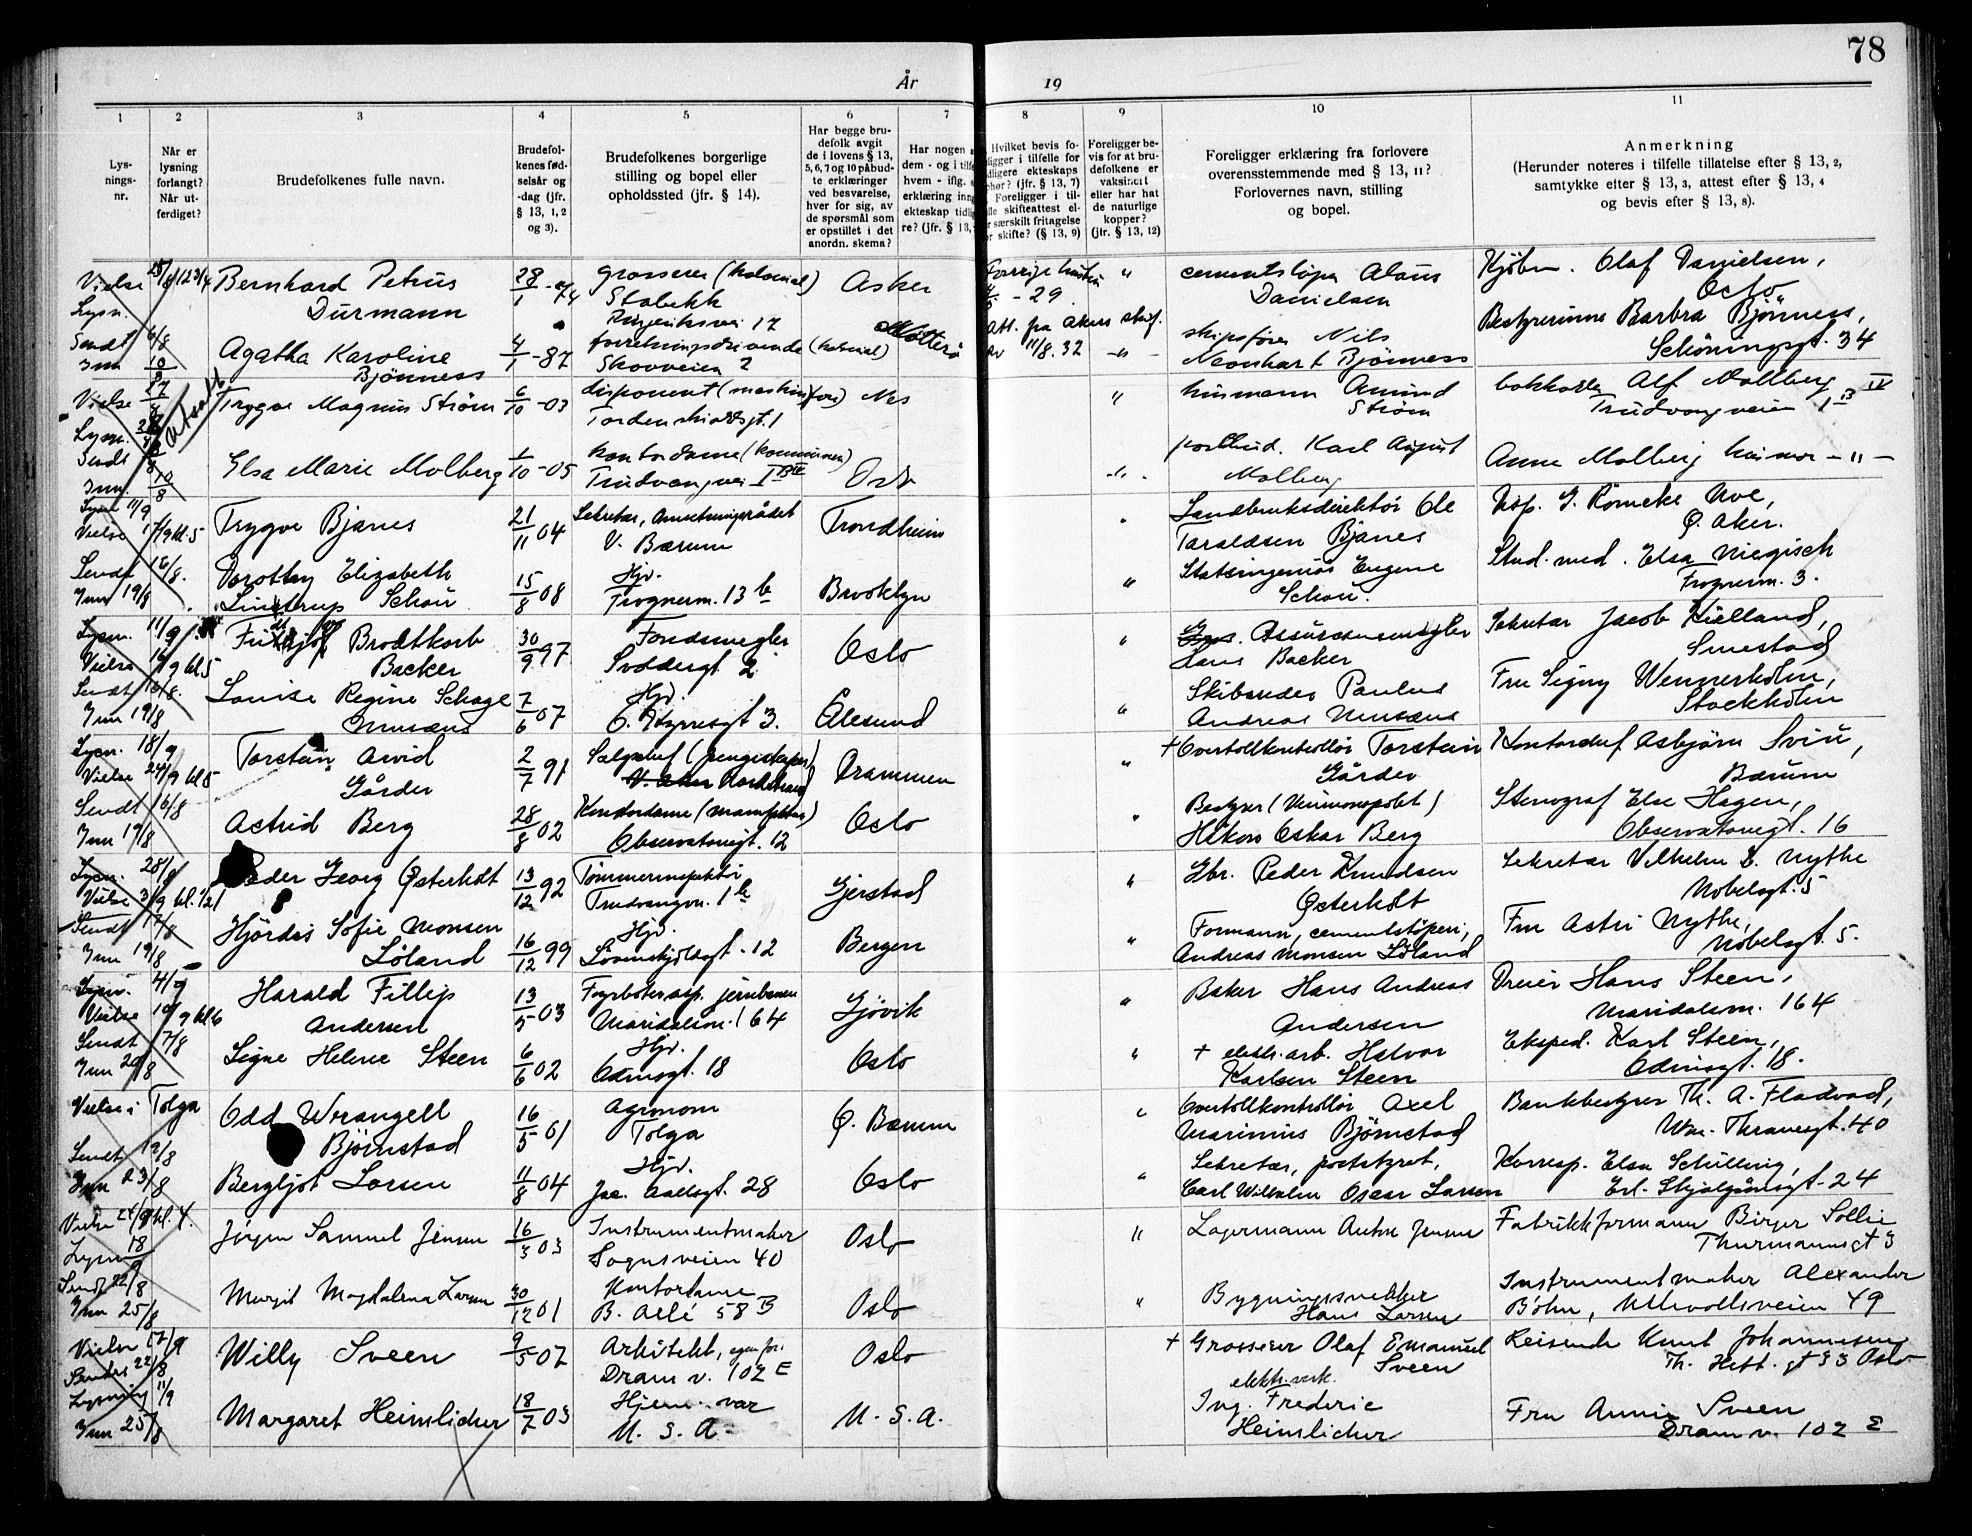 78
År
19
1
2
3
4
5
6
7
8
9
10
11
Lys-
nings-
nr.
Når er
lysning
forlangt?
Når ut-
ferdiget?
Brudefolkenes fulle navn.
Brudefol-
kenes fød-
selsår og
-dag (jfr.
§ 13, 1, 2
og 3).
Brudefolkenes borgerlige
stilling og bopel eller
opholdssted (jfr. § 14).
Har begge bru-
defolk avgit
de i lovens § 13,
5, 6, 7 og 10 påbud-
te erklæringer
ved besvarelse,
hver for sig, av
de spørsmål som
er opstillet i det
anordn. skema?
Har nogen
dem - og i tilf
hvem - iflg.
erklæring inng
ekteskap tidl
re? (jfr. § 13,
Hvilket bevis fo-
ligger i tilfelle for
dligere ekteskaps
hør? (jfr. § 13, 7)
Foreligger i til-
lle skifteattest el-
r særskilt fritagelse
or skifte? (§ 13, 9)
Foreligger be-
vis for at bru-
defolkene er
vaksinert
eller har hat
de naturlige
kopper?
(jfr. § 13, 12)
Foreligger erklæring fra forlovere
overensstemmende med § 13, 11?
Forlovernes navn, stilling
og bopel.
Anmerkning
(Herunder noteres i tilfelle tillatelse efter § 13, 2,
samtykke efter § 13, 3, attest efter § 13, 4
og bevis efter § 13, 8).
Vielse
Lysn.
Bernhard Petrus
Durmann
28/1 - 74
grosserer (kolonial)
Stabekk
Ringeriksvei 17
Asker
- 29
"
Danielsen
Kjøbm. Olaf Danielsen,
Oslo
Sendt 6/8
Inn 10/8
Agatha Karoline
Bjønness
4/1 - 87
forretningsdrivende (kolonial)
Skovveien 2
att. fra Akers skif.
av 11/8. 32
- " -
skipsfører Nils
Bjønness
Bestyrerinne Barbra Bjønness,
Schøningsgt. 34
Vielse
Lysn.
Trygve Magnus Strøm
6/10 - 03
disponent (maskinforr)
Tordenskioldsgt. 1
Nes
"
Amund
Strøm
Alf Molberg
Trudvangveien 1 B IV
Sendt
Inn. 10/8
Elsa Marie Molberg
1/10 - 05
kontordame (kommunen)
Trudvangvei 1 B IV
Oslo
- " -
Karl August
Molberg
Anne Molberg husmor - " -
Lysn 11/9
Vielse 17/9 kl. 5
Trygve Bjanes
21/11 04
Sekretær, Ansetningsrådet
V. Bærum
Trondheim
"
Landbruksdirektør Ole
Taraldsen Bjanes
Disp. G. Rømcke Uve,
Ø. Aker.
Sendt 16/8.
Inn 19/8
Dorothy Elizabeth
Linstrup Schou
15/8 08
Hjv.
Frognerv. 13 b
Brooklyn
"
Statsingeniør Eugene
Schou.
Stud. med. Elsa Niegisch
Frognerv. 3.
Lysn. 11/9
Vielse 16/9 kl 5
Fridtjof Brodtkorb
Backer
30/9 97
Fondsmegler
2
Oslo
"
Assuransemegler
Hans Backer
Sekretær Jacob Kielland,
Smestad
Sendt 16/8.
Inn 19/8
Louise Regine Schage
Musæus
7/6 07
Hjv.
3.
Ålesund
"
Skibsreder Paulus
Andreas Musæus
Fru Signy Wennerholm,
Stockholm
Lysn. 18/9
Vielse 24/9 kl 5
Torstein Arvid
Gårder
2/7 91
Salgschef (pengeskaper)
V. Aker Nordstrand
Drammen
"
+ Overtollkontrollør Torstein
Gårder
Kontorchef Asbjørn Sviu,
Bærum
Sendt 16/8
Inn 19/8
Astrid Berg
28/8 02
Kontordame (manufaktur)
Observatoriegt. 12
Oslo
"
Bestyrer (Vinmonopolet)
Håkon Oskar Berg
Stenograf Else Hagen,
Observatoriegt. 16
Lysn. 28/8
Vielse 3/9 kl. 1/2 1
Peder Georg Østerholt
13/12 92
Tømmerinspektør
Trudvangvn. 1 b
Gjerstad
"
Gbr. Peder Knudsen
Østerholt
Sekretær Vilhelm L. Mythe
Nobelsgt. 5
Sendt 17/8
Inn 19/8
Hjördis Sofie Monsen
Löland
16/12 99
Hjv.
Løvenskjoldsgt. 12
Bergen
"
Formann, cementstøperi,
Andreas Monsen Löland
Fru Astri Mythe,
Nobelsgt. 5.
Lysn. 4/9
Vielse 10/9 kl 6
Harald Fillip
Andersen
13/5 03
Fyrbøterasp. jernbanen
Maridalsvn. 164
Gjövik
"
Baker Hans Andreas
Andersen
Dreier Hans Steen,
Maridalsvn. 164
Sendt 17/8
Inn 20/8
Signe Helene Steen
6/6 02
Hjv.
Odinsgt. 18
Oslo
"
+ elektr. arb. Halvor
Karlsen Steen
Eksped. Karl Steen,
Odinsgt. 18.
Vielse i Tolga
Odd Wrangell
Bjørnstad
16/5 01
Agronom
Tolga
Ø. Bærum
"
Overtollkontrollør Axel
Marinius Bjørnstad
Bankbestyrer Th. A. Fladvad,
Wm. Thranesgt. 40
Sendt 19/8
Inn 23/8
Bergljot Larsen
11/8 04
Hjv.
Jac. Aallsgt. 28
Oslo
"
Sekretær, poststyret,
Carl Wilhelm Oscar Larsen
Korresp. Elsa Schilling,
Erl. Skjalgssønsgt. 24
Vielse 24/9 kl. 4.
Lysn 18/9
Jörgen Samuel Jensen
16/3 03
Instrumentmaker
Sognsveien 40
Oslo
"
Lagermann Anton Jensen
Fabrikkformann Birger Sollie
Thurmannsgt 3
Sendt 22/8
Inn 25/8
Margit Magdalena Larsen
30/12 01
Kontordame
B. Allé 58 B
Oslo
"
Bygningssnekker
Hans Larsen
Instrumentmaker Alexander
Böhn, Ullevollsveien 49
Vielse 17/9
Sendes 22/8
Willy Sveen
9/5 07
Arkitekt, egen forr.
Dram v. 102 E
Oslo
+ Grosserer Olaf Emanuel
Sveen
Reisende Knut Johannesen
Th. Heft. gt 33 Oslo
Lysning 11/9
Inn 25/8
Margaret Heimlicher
18/7 03
Hjemmevær
U. S. A.
U. S. A.
elektr. verk.
Ing. Frederic
Heimlicher
Fru Annie Sveen
Dram v. 102 E